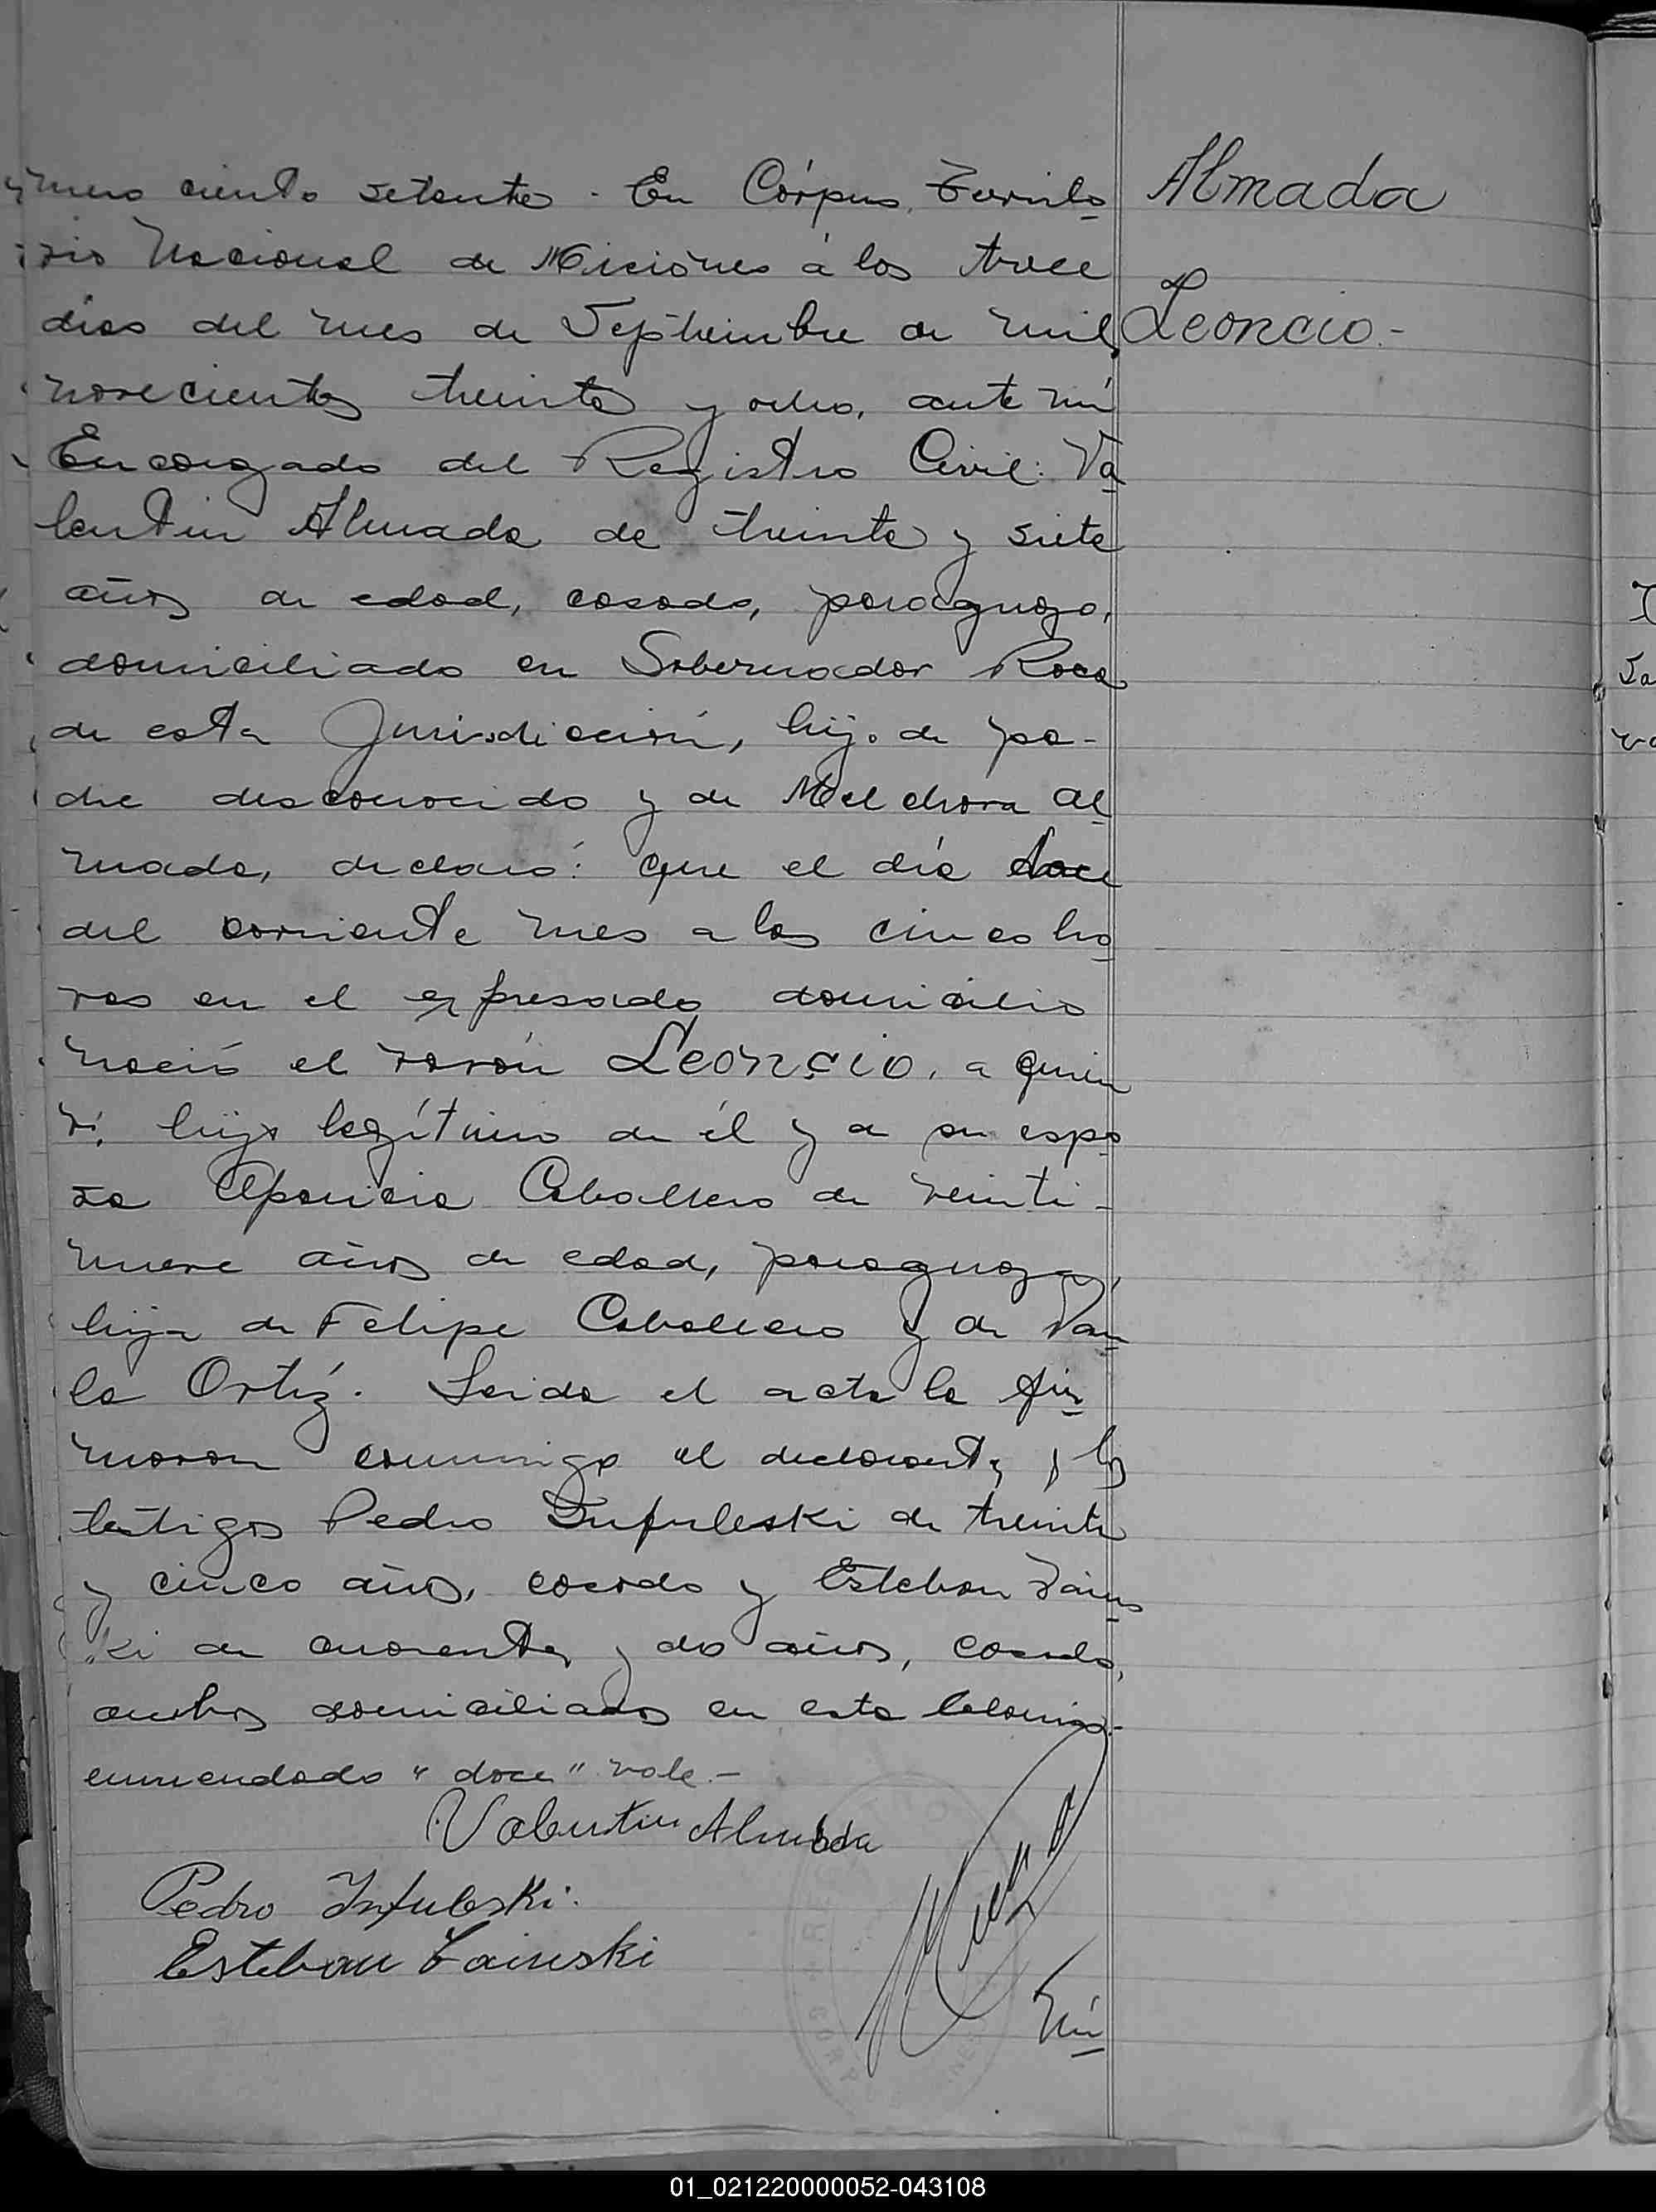 mero ciento setenta. En Córpus, Territo
rio Nacional de Misiónes á los trece
dias del mes de Septiembre de mil
novecientos treinta y ocho, ante mi
Encargado del Registro Civil: Va
lentin Almada de treinta y siete
años de edad, casado, paraguayo,
domiciliado en Gobernador Roca
de esta Jurisdicción, hijo de pa-
dre desconocido y de Melchora Al
mada, declaró: que el día doce
del corriente mes a las cinco ho
ras en el expresado domicilio
nació el varón Leoncio, a quien
vi, hijo legítimo de él y de su espo
sa Aparicia Caballero de veinti-
nueve años de edad, paraguaya,
hija de Felipe Caballero y de Pau
la Ortíz. Leida el acta la fir
maron conmigo el declarante y los
testigos Pedro Infuleski de treinta
y cinco años, casado y Esteban Zains
ki de cuarenta y dos años, casado,
ambos domiciliados en esta Colonia.-
enmendado "doce" vale.-
Valentin Almada
Pedro Infuleski.
Esteban Zainski
Nú
Almada
Leoncio.-
REGISTRO
01_021220000052-043108